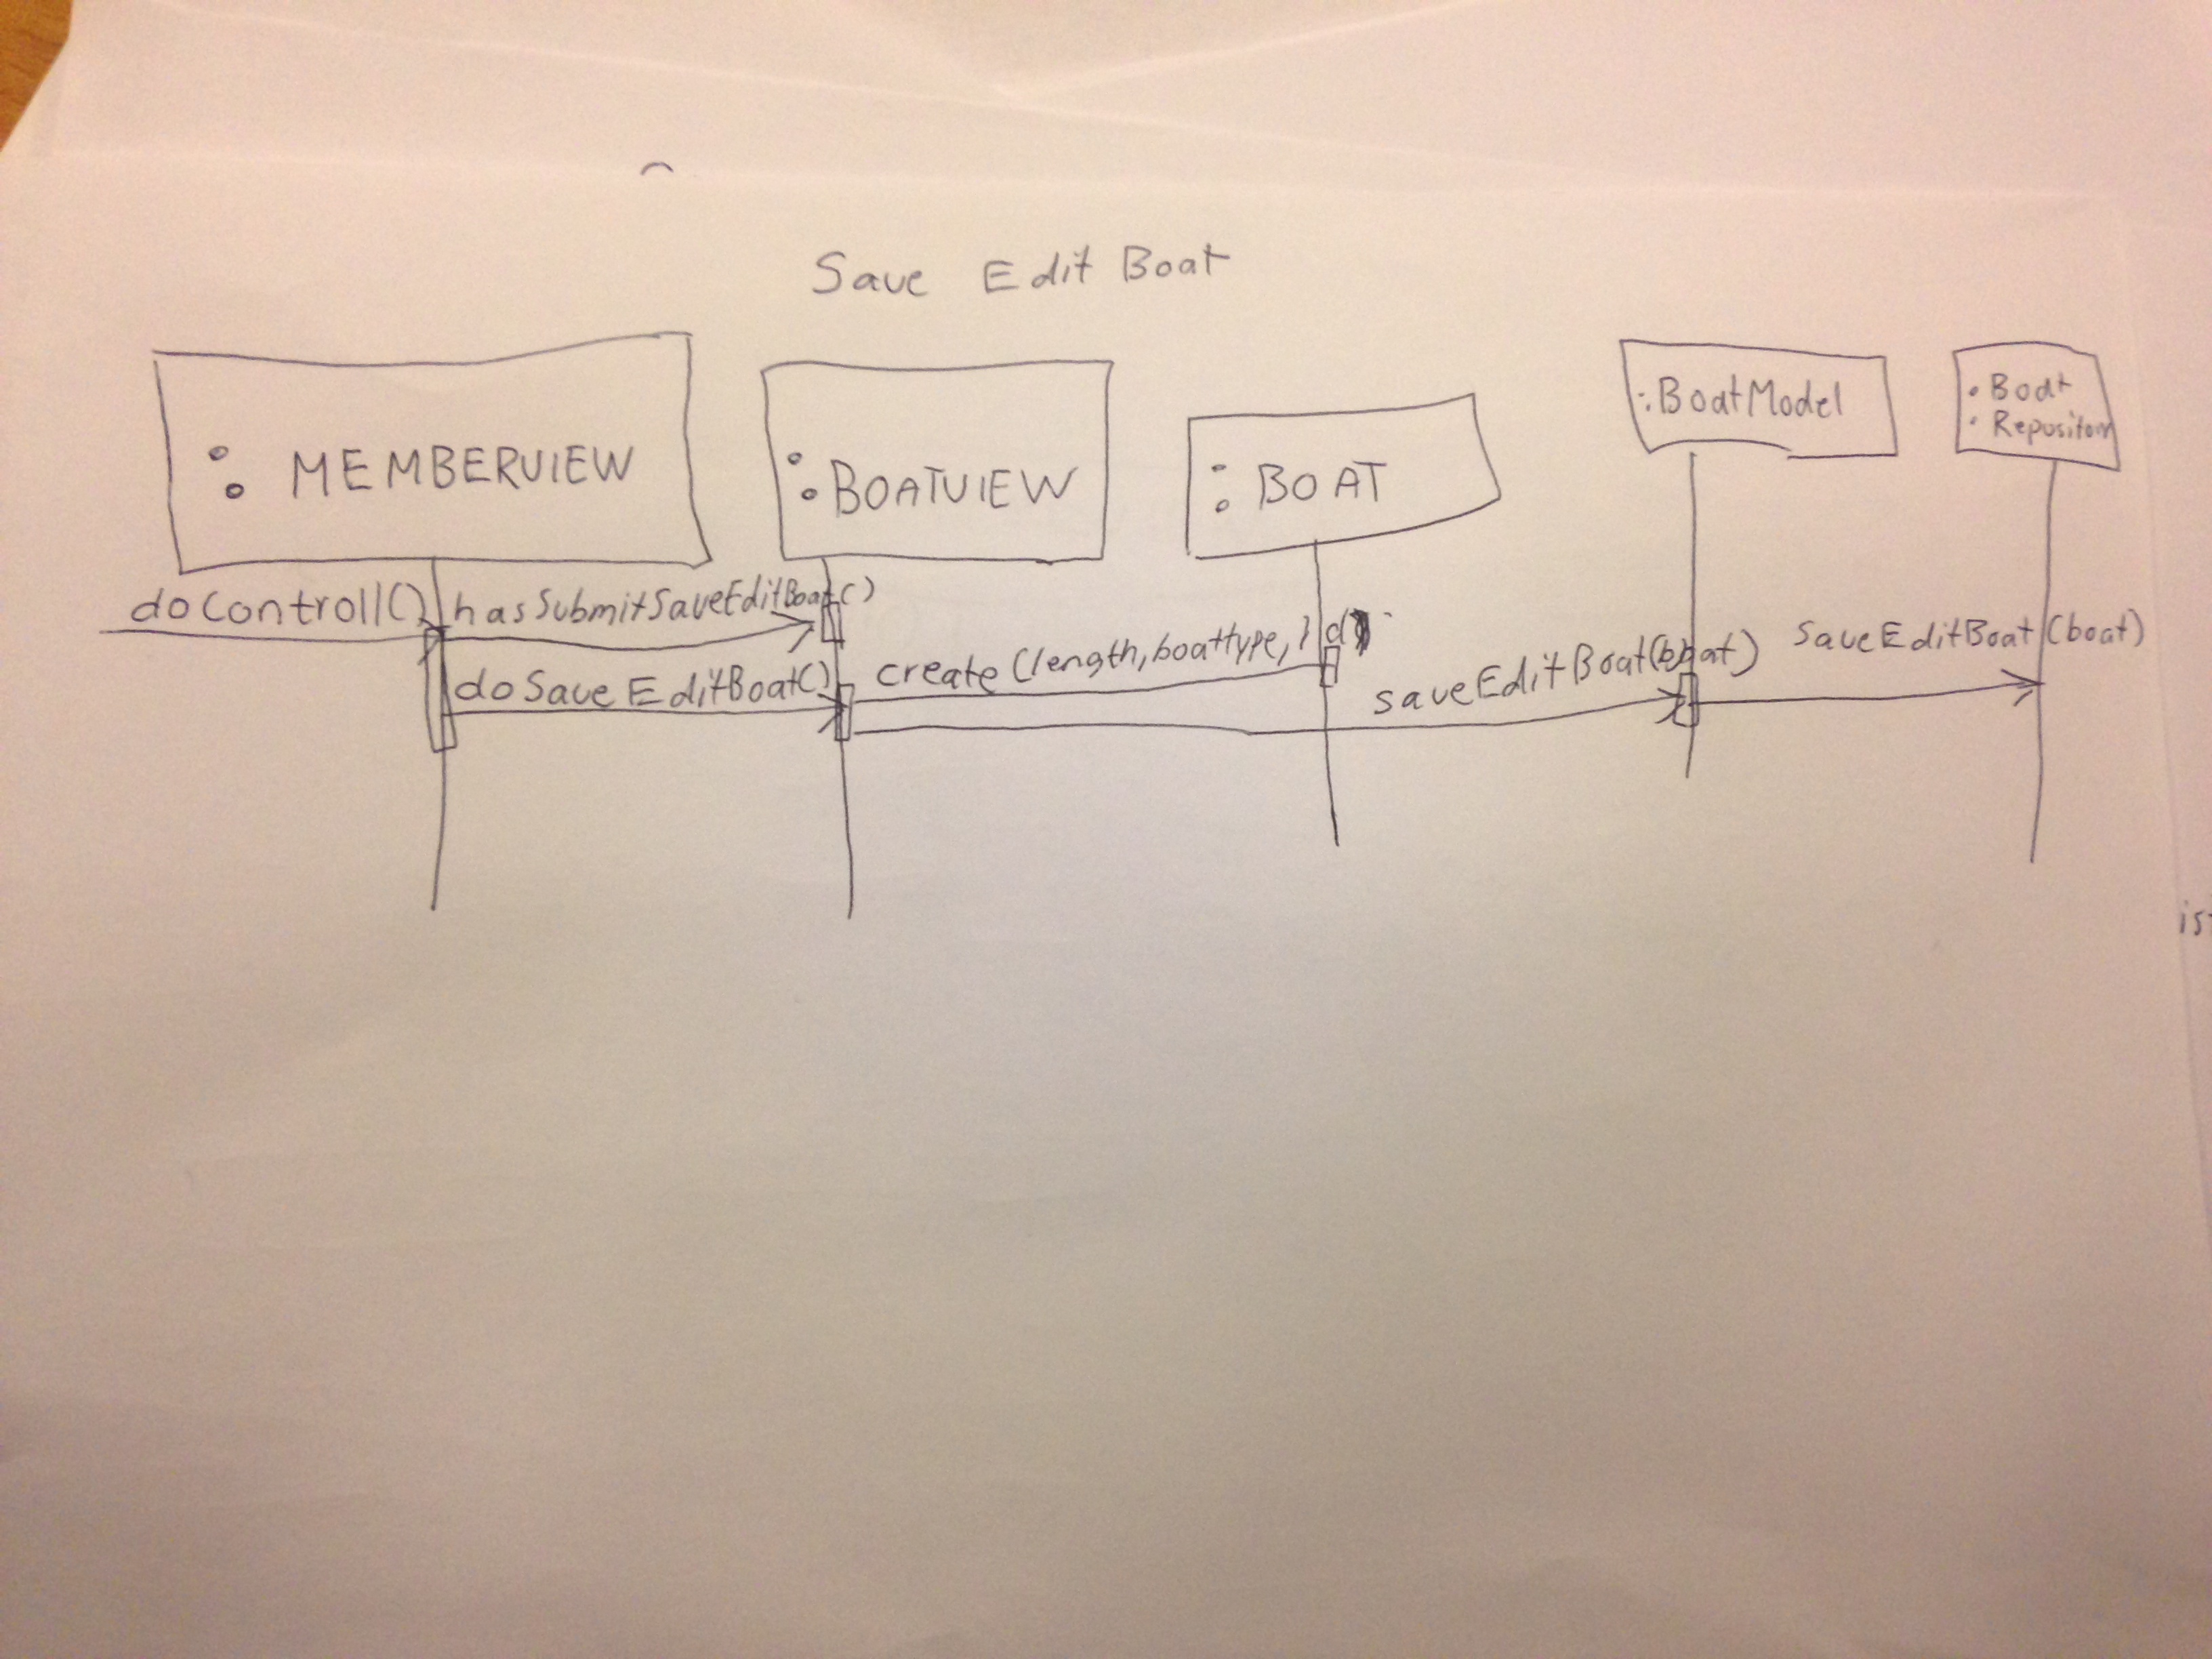 Save Edit Boat
: MEMBERVIEW
: BOATVIEW
: BOAT
:BoatModel
: Boat
Repository
doControll()
hasSubmitSaveEditBoat()
doSaveEditBoat()
create(length, boattype, id)
saveEditBoat(boat)
saveEditBoat(boat)